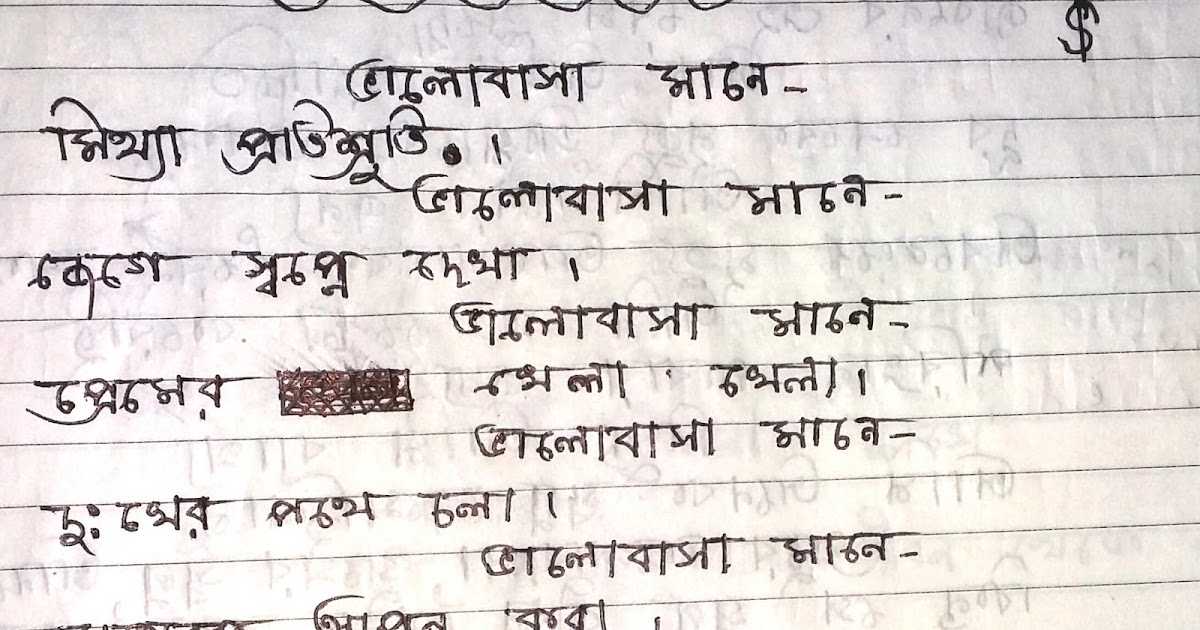 $
ভালোবাসা মানে-
মিথ্যা প্রতিশ্রুতি।
ভালোবাসা মানে-
জেগে স্বপ্নে দেখা।
ভালোবাসা মানে-
প্রেমের খেলা খেলা।
ভালোবাসা মানে-
দুঃখের পথে চলা।
ভালোবাসা মানে-
আপন করা।